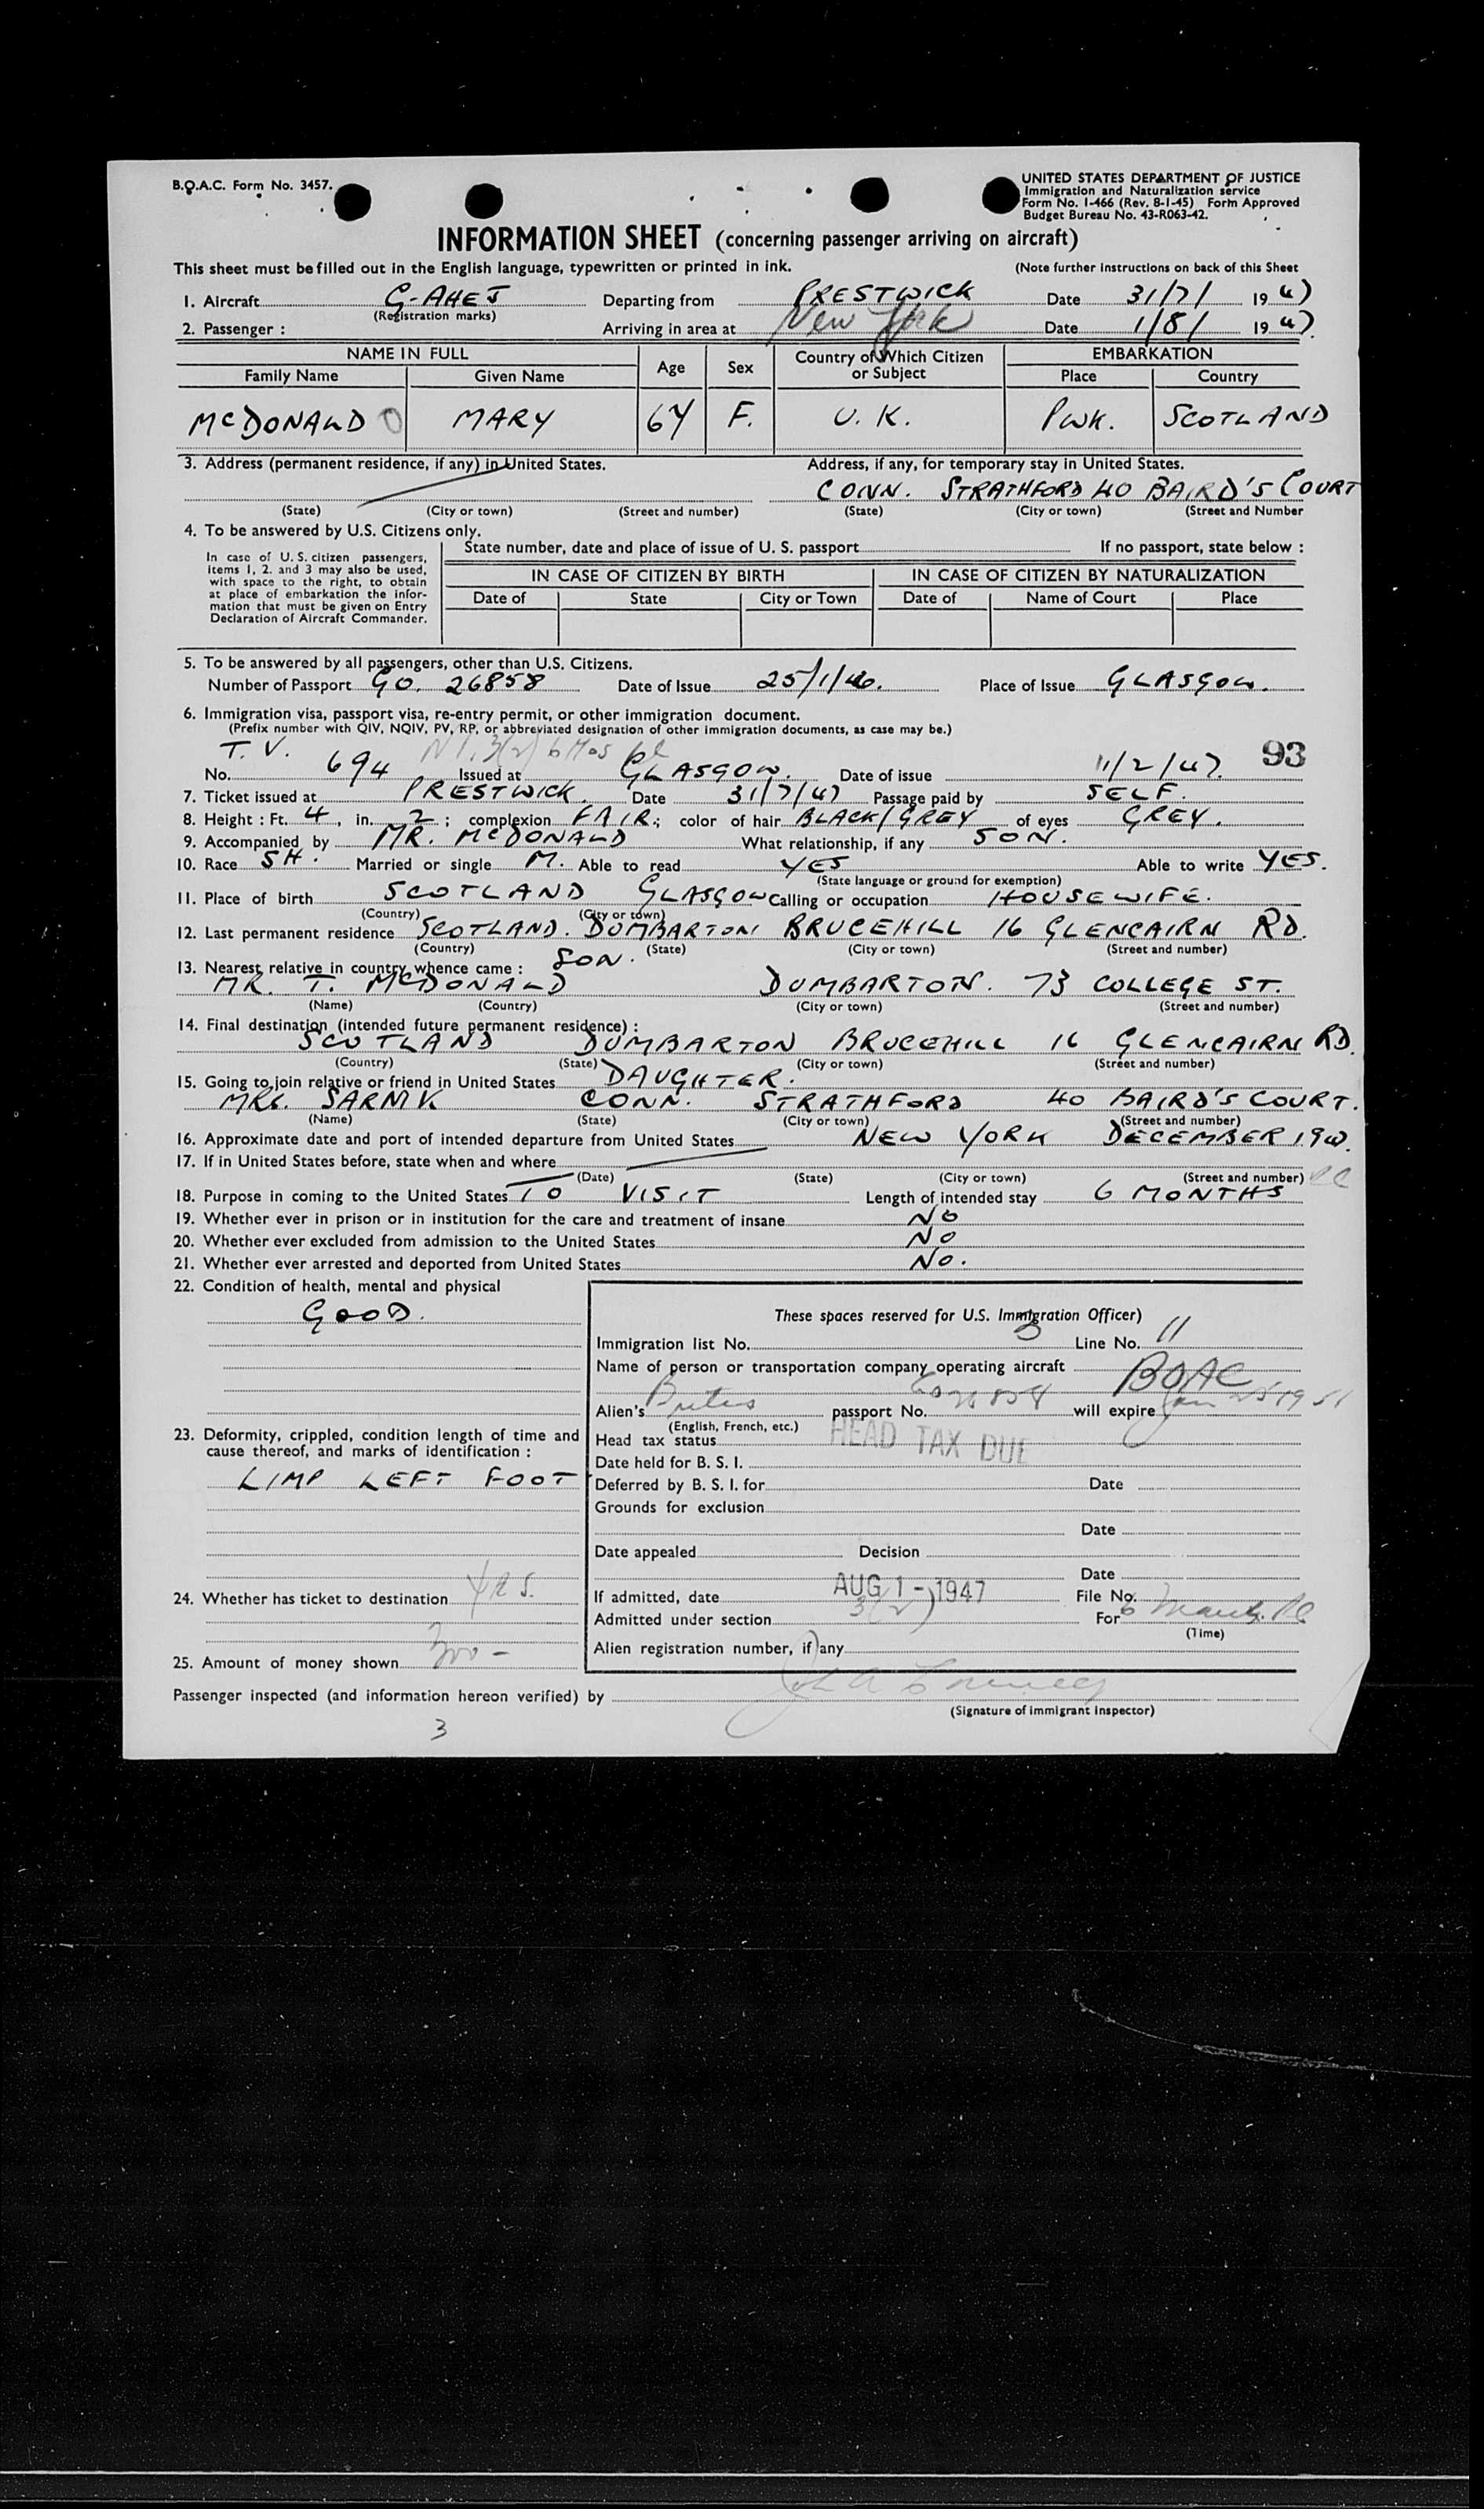 B.O.A.C. Form No. 3457.
UNITED STATES DEPARTMENT OF JUSTICE
Immigration and Naturalization service
Form No. I-466 (Rev. 8-1-45) Form Approved
Budget Bureau No. 43-R063-42.
INFORMATION SHEET (concerning passenger arriving on aircraft)
This sheet must be filled out in the English language, typewritten or printed in ink. (Note further instructions on back of this Sheet
1. Aircraft G-AHEJ Departing from PRESTWICK Date 31/7/ 1947
(Registration marks)
2. Passenger : Arriving in area at New York Date 1/8/ 1947
NAME IN FULL Age Sex Country of Which Citizen or Subject EMBARKATION
Family Name Given Name Place Country
McDONALD MARY 64 F. U.K. PWK. SCOTLAND
3. Address (permanent residence, if any) in United States. Address, if any, for temporary stay in United States.
CONN. STRATHFORD 40 BAIRD'S COURT
(State) (City or town) (Street and number) (State) (City or town) (Street and Number
4. To be answered by U.S. Citizens only.
In case of U. S. citizen passengers,
items 1, 2. and 3 may also be used,
with space to the right, to obtain
at place of embarkation the infor-
mation that must be given on Entry
Declaration of Aircraft Commander.
State number, date and place of issue of U. S. passport If no passport, state below :
IN CASE OF CITIZEN BY BIRTH IN CASE OF CITIZEN BY NATURALIZATION
Date of State City or Town Date of Name of Court Place
5. To be answered by all passengers, other than U.S. Citizens.
Number of Passport GO. 26858 Date of Issue 25/1/46. Place of Issue GLASGOW.
6. Immigration visa, passport visa, re-entry permit, or other immigration document.
(Prefix number with QIV, NQIV, PV, RP, or abbreviated designation of other immigration documents, as case may be.)
T. V. 3(2) 6 Mos 93
No. 694 Issued at GLASGOW. Date of issue 11/2/47.
7. Ticket issued at PRESTWICK. Date 31/7/47 Passage paid by SELF.
8. Height : Ft. 4, in. 2; complexion FAIR; color of hair BLACK/GREY of eyes GREY.
9. Accompanied by MR. McDONALD What relationship, if any SON.
10. Race SH. Married or single M. Able to read YES Able to write YES.
(State language or ground for exemption)
11. Place of birth SCOTLAND GLASGOW Calling or occupation HOUSEWIFE.
(Country) (City or town)
12. Last permanent residence SCOTLAND. DUMBARTON BRUCEHILL 16 GLENCAIRN RD.
(Country) (State) (City or town) (Street and number)
13. Nearest relative in country whence came : SON.
MR. T. McDONALD DUMBARTON. 73 COLLEGE ST.
(Name) (Country) (City or town) (Street and number)
14. Final destination (intended future permanent residence) :
SCOTLAND DUMBARTON BRUCEHILL 16 GLENCAIRN RD.
(Country) (State) (City or town) (Street and number)
15. Going to join relative or friend in United States DAUGHTER.
MRS. SARNIK CONN. STRATHFORD 40 BAIRD'S COURT.
(Name) (State) (City or town) (Street and number)
16. Approximate date and port of intended departure from United States NEW YORK DECEMBER 1947.
17. If in United States before, state when and where
(Date) (State) (City or town) (Street and number)
18. Purpose in coming to the United States TO VISIT Length of intended stay 6 MONTHS
19. Whether ever in prison or in institution for the care and treatment of insane NO
20. Whether ever excluded from admission to the United States NO
21. Whether ever arrested and deported from United States NO.
22. Condition of health, mental and physical
GOOD.
23. Deformity, crippled, condition length of time and
cause thereof, and marks of identification :
LIMP LEFT FOOT
24. Whether has ticket to destination yes.
25. Amount of money shown 300 -
These spaces reserved for U.S. Immigration Officer)
Immigration list No. 3 Line No. 11
Name of person or transportation company operating aircraft
BOAC
Alien's British passport No. GO 26858 will expire Jan 25 1951
(English, French, etc.)
Head tax status HEAD TAX DUE
Date held for B. S. I.
Deferred by B. S. I. for Date
Grounds for exclusion
Date
Date appealed Decision
Date
If admitted, date AUG 1 - 1947 File No.
Admitted under section 3(2) For 6 months
(Time)
Alien registration number, if any
Passenger inspected (and information hereon verified) by
(Signature of immigrant Inspector)
3